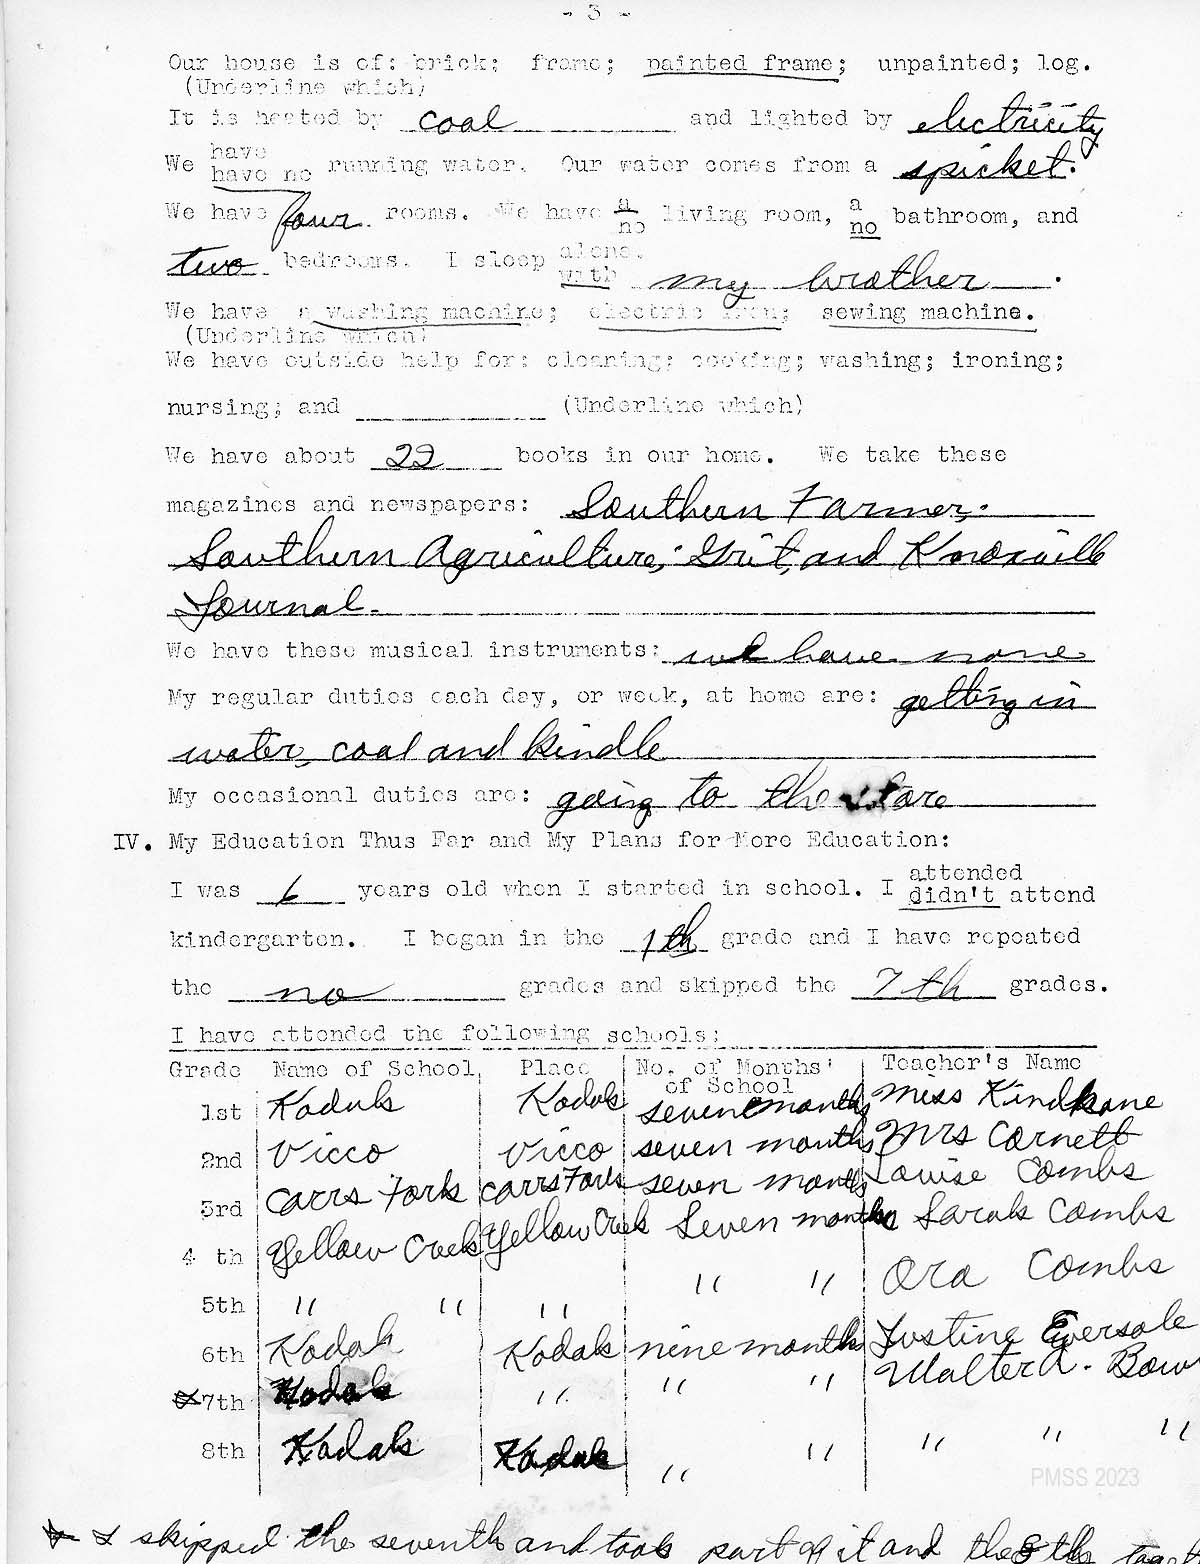 - 3 -
Our house is of: brick; frame; painted frame; unpainted; log.
(Underline which)
It is heated by coal and lighted by electricity
We have
have no running water. Our water comes from a spicket.
We have four rooms. We have a
no living room, a
no bathroom, and
two bedrooms. I sleep alone.
with my brother.
We have a washing machine; electric iron; sewing machine.
(Underline which)
We have outside help for: cleaning; cooking; washing; ironing;
nursing; and (Underline which)
We have about 22 books in our home. We take these
magazines and newspapers: Southern Farmer,
Southern Agriculture, Grit, and Knoxville
Journal.
We have these musical instruments: we have none
My regular duties each day, or week, at home are: getting in
water, coal and kindle
My occasional duties are: going to the store
IV. My Education Thus Far and My Plans for More Education:
I was 6 years old when I started in school. I attended
didn't attend
kindergarten. I began in the 1th grade and I have repeated
the no grades and skipped the 7th grades.
I have attended the following schools:
Grade Name of School Place No. of Months' of School Teacher's Name
1st Kodak Kodak seven months Miss
2nd Vicco Vicco seven months Mrs Cornett
3rd Carrs Fork Carrs Fork seven months Louise Combs
4 th Yellow Creek Yellow Creek Seven months Sarah Combs
5th " " " " " Ora Combs
6th Kodak Kodak nine months Justine Eversole
x 7th Kodak " " " Walter A. Bow
8th Kodak Kodak " " " " "
x I skipped the seventh and took part of it and the 8th
PMSS 2023